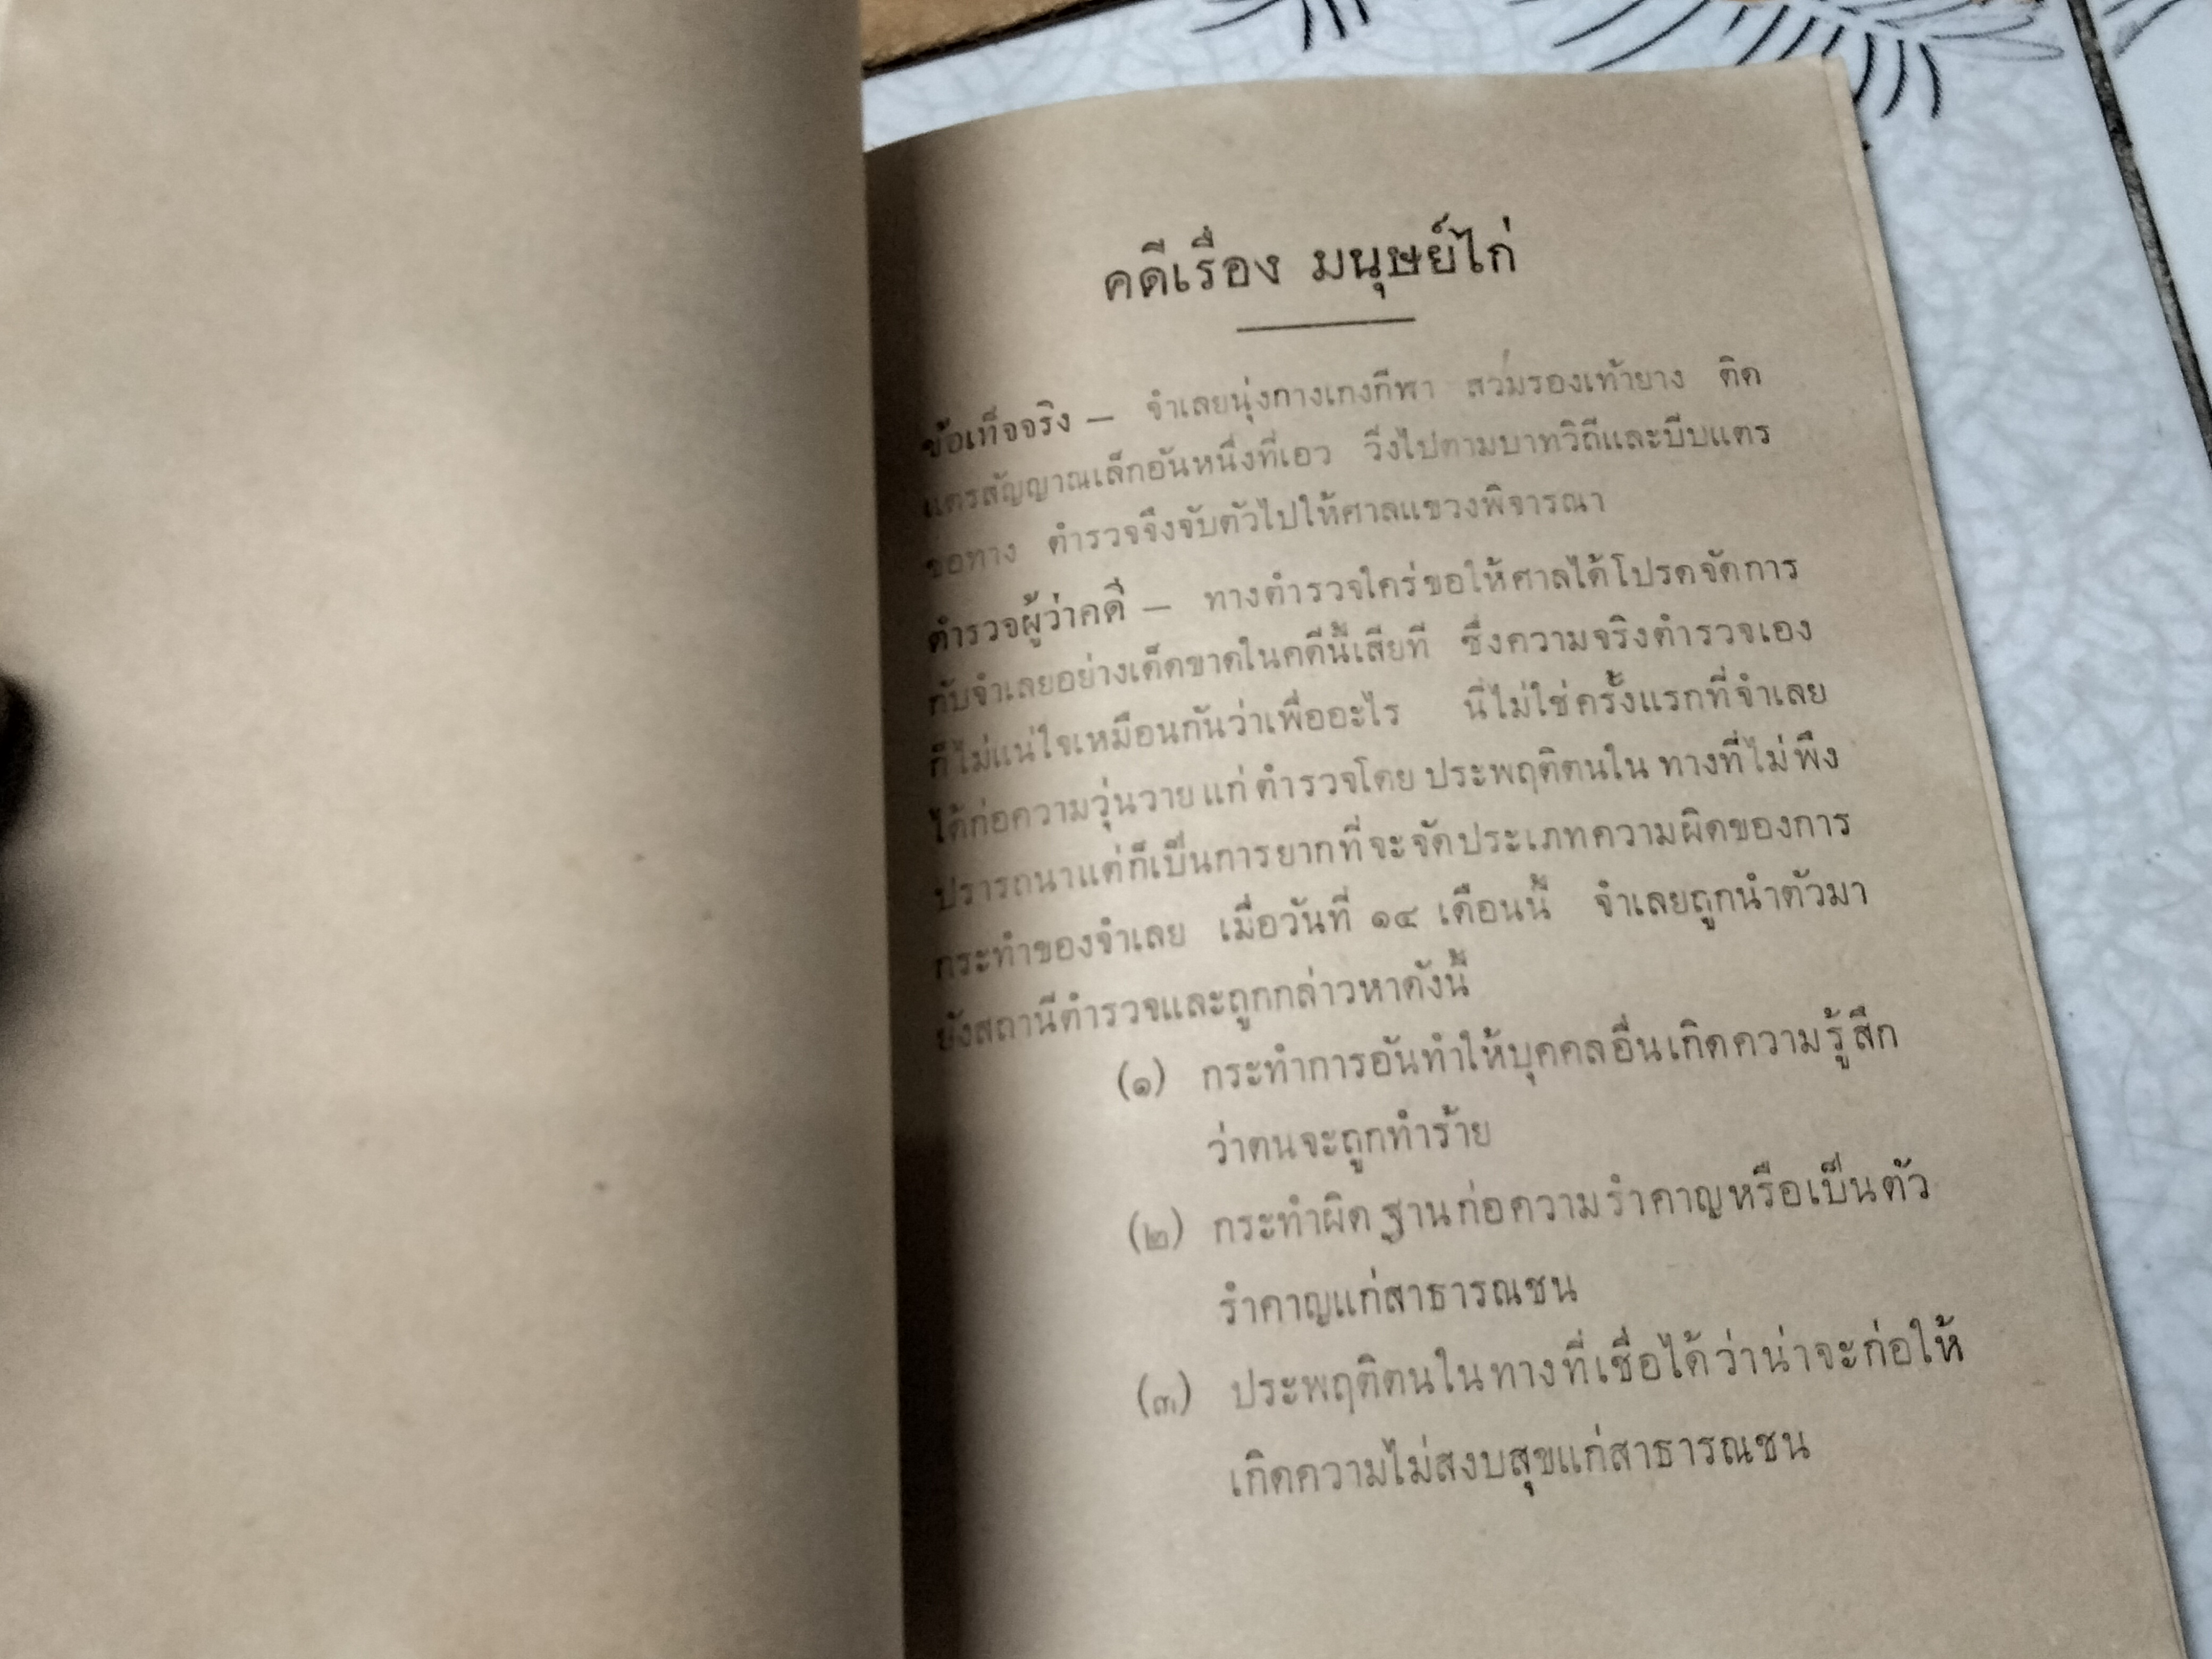 คดีเรื่อง มนุษย์ไก่
ข้อเท็จจริง — จำเลยนุ่งกางเกงกีฬา สวมรองเท้ายาง ติด
แตรสัญญาณเล็กอันหนึ่งที่เอว วิ่งไปตามบาทวิถีและบีบแตร
ขอทาง ตำรวจจึงจับตัวไปให้ศาลแขวงพิจารณา
ตำรวจผู้ว่าคดี — ทางตำรวจใคร่ขอให้ศาลได้โปรดจัดการ
กับจำเลยอย่างเด็ดขาดในคดีนี้เสียที ซึ่งความจริงตำรวจเอง
ก็ไม่แน่ใจเหมือนกันว่าเพื่ออะไร นี่ไม่ใช่ครั้งแรกที่จำเลย
ได้ก่อความวุ่นวายแก่ตำรวจโดย ประพฤติตนใน ทางที่ไม่พึง
ปรารถนาแต่ก็เป็นการยากที่จะจัดประเภทความผิดของการ
กระทำของจำเลย เมื่อวันที่ ๑๔ เดือนนี้ จำเลยถูกนำตัวมา
ยังสถานีตำรวจและถูกกล่าวหาดังนี้
(๑) กระทำการอันทำให้บุคคลอื่นเกิดความรู้สึก
ว่าตนจะถูกทำร้าย
(๒) กระทำผิด ฐานก่อความรำคาญหรือเป็นตัว
รำคาญแก่สาธารณชน
(๓) ประพฤติตนในทางที่เชื่อได้ว่าน่าจะก่อให้
เกิดความไม่สงบสุขแก่สาธารณชน